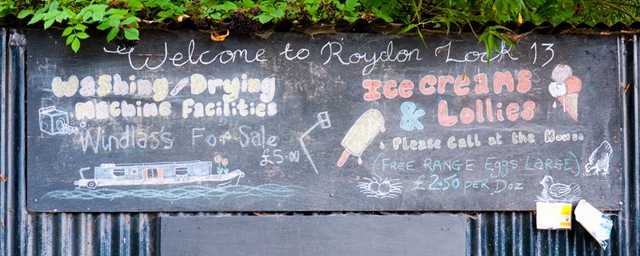 Welcome to Roydon Lock 13
Washing/Drying
Machine Facilities
Windlass For Sale
£5.00
Ice cream's
& Lollies
Please Call at the House
(FREE RANGE Eggs LARGE)
£2.50 PER Doz